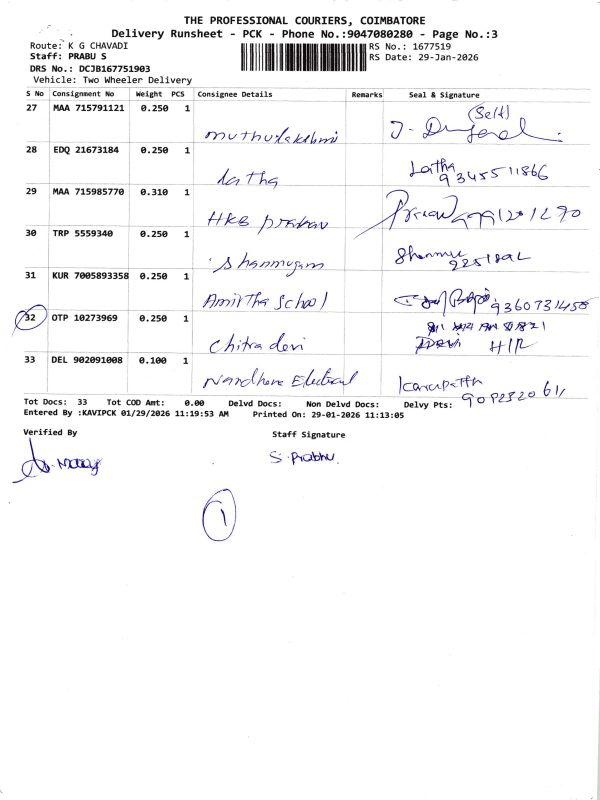 THE PROFESSIONAL COURIERS, COIMBATORE
Delivery Runsheet - PCK - Phone No.:9047080280 - Page No.:3
Route: K G CHAVADI
RS No.: 1677519
Staff: PRABU S
RS Date: 29-Jan-2026
DRS No.: DCJB167751903
Vehicle: Two Wheeler Delivery
S No Consignment No Weight PCS Consignee Details Remarks Seal & Signature
27 MAA 715791121 0.250 1 Muthulakshmi (Self)
28 EDQ 21673184 0.250 1 Latha Latha
9345511866
29 MAA 715985770 0.310 1 HKB
30 TRP 5559340 0.250 1 Shanmugam
31 KUR 7005893358 0.250 1 Amirtha School 9360731458
32 OTP 10273969 0.250 1 Chitra devi
33 DEL 902091008 0.100 1
Tot Docs: 33 Tot COD Amt: 0.00 Delvd Docs: Non Delvd Docs: Delvy Pts:
Entered By :KAVIPCK 01/29/2026 11:19:53 AM Printed On: 29-01-2026 11:13:05
Verified By Staff Signature
S. Prabhu
1